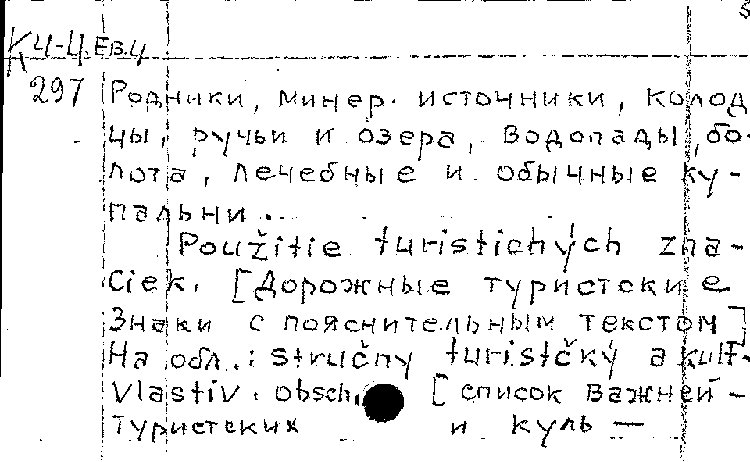 К4-Ц.Ев.4
297 Родники, минер. источники, колод
цы, ручьи и озера, водопады, бо-
лота, лечебные и обычные ку-
пальни...
Použitie turistichých zna-
ciek. [Дорожные туристские
знаки с пояснительным текстом]
На обл.: stručny turističký a kult.
vlastiv. obsch. [список важней-
туристских и куль—